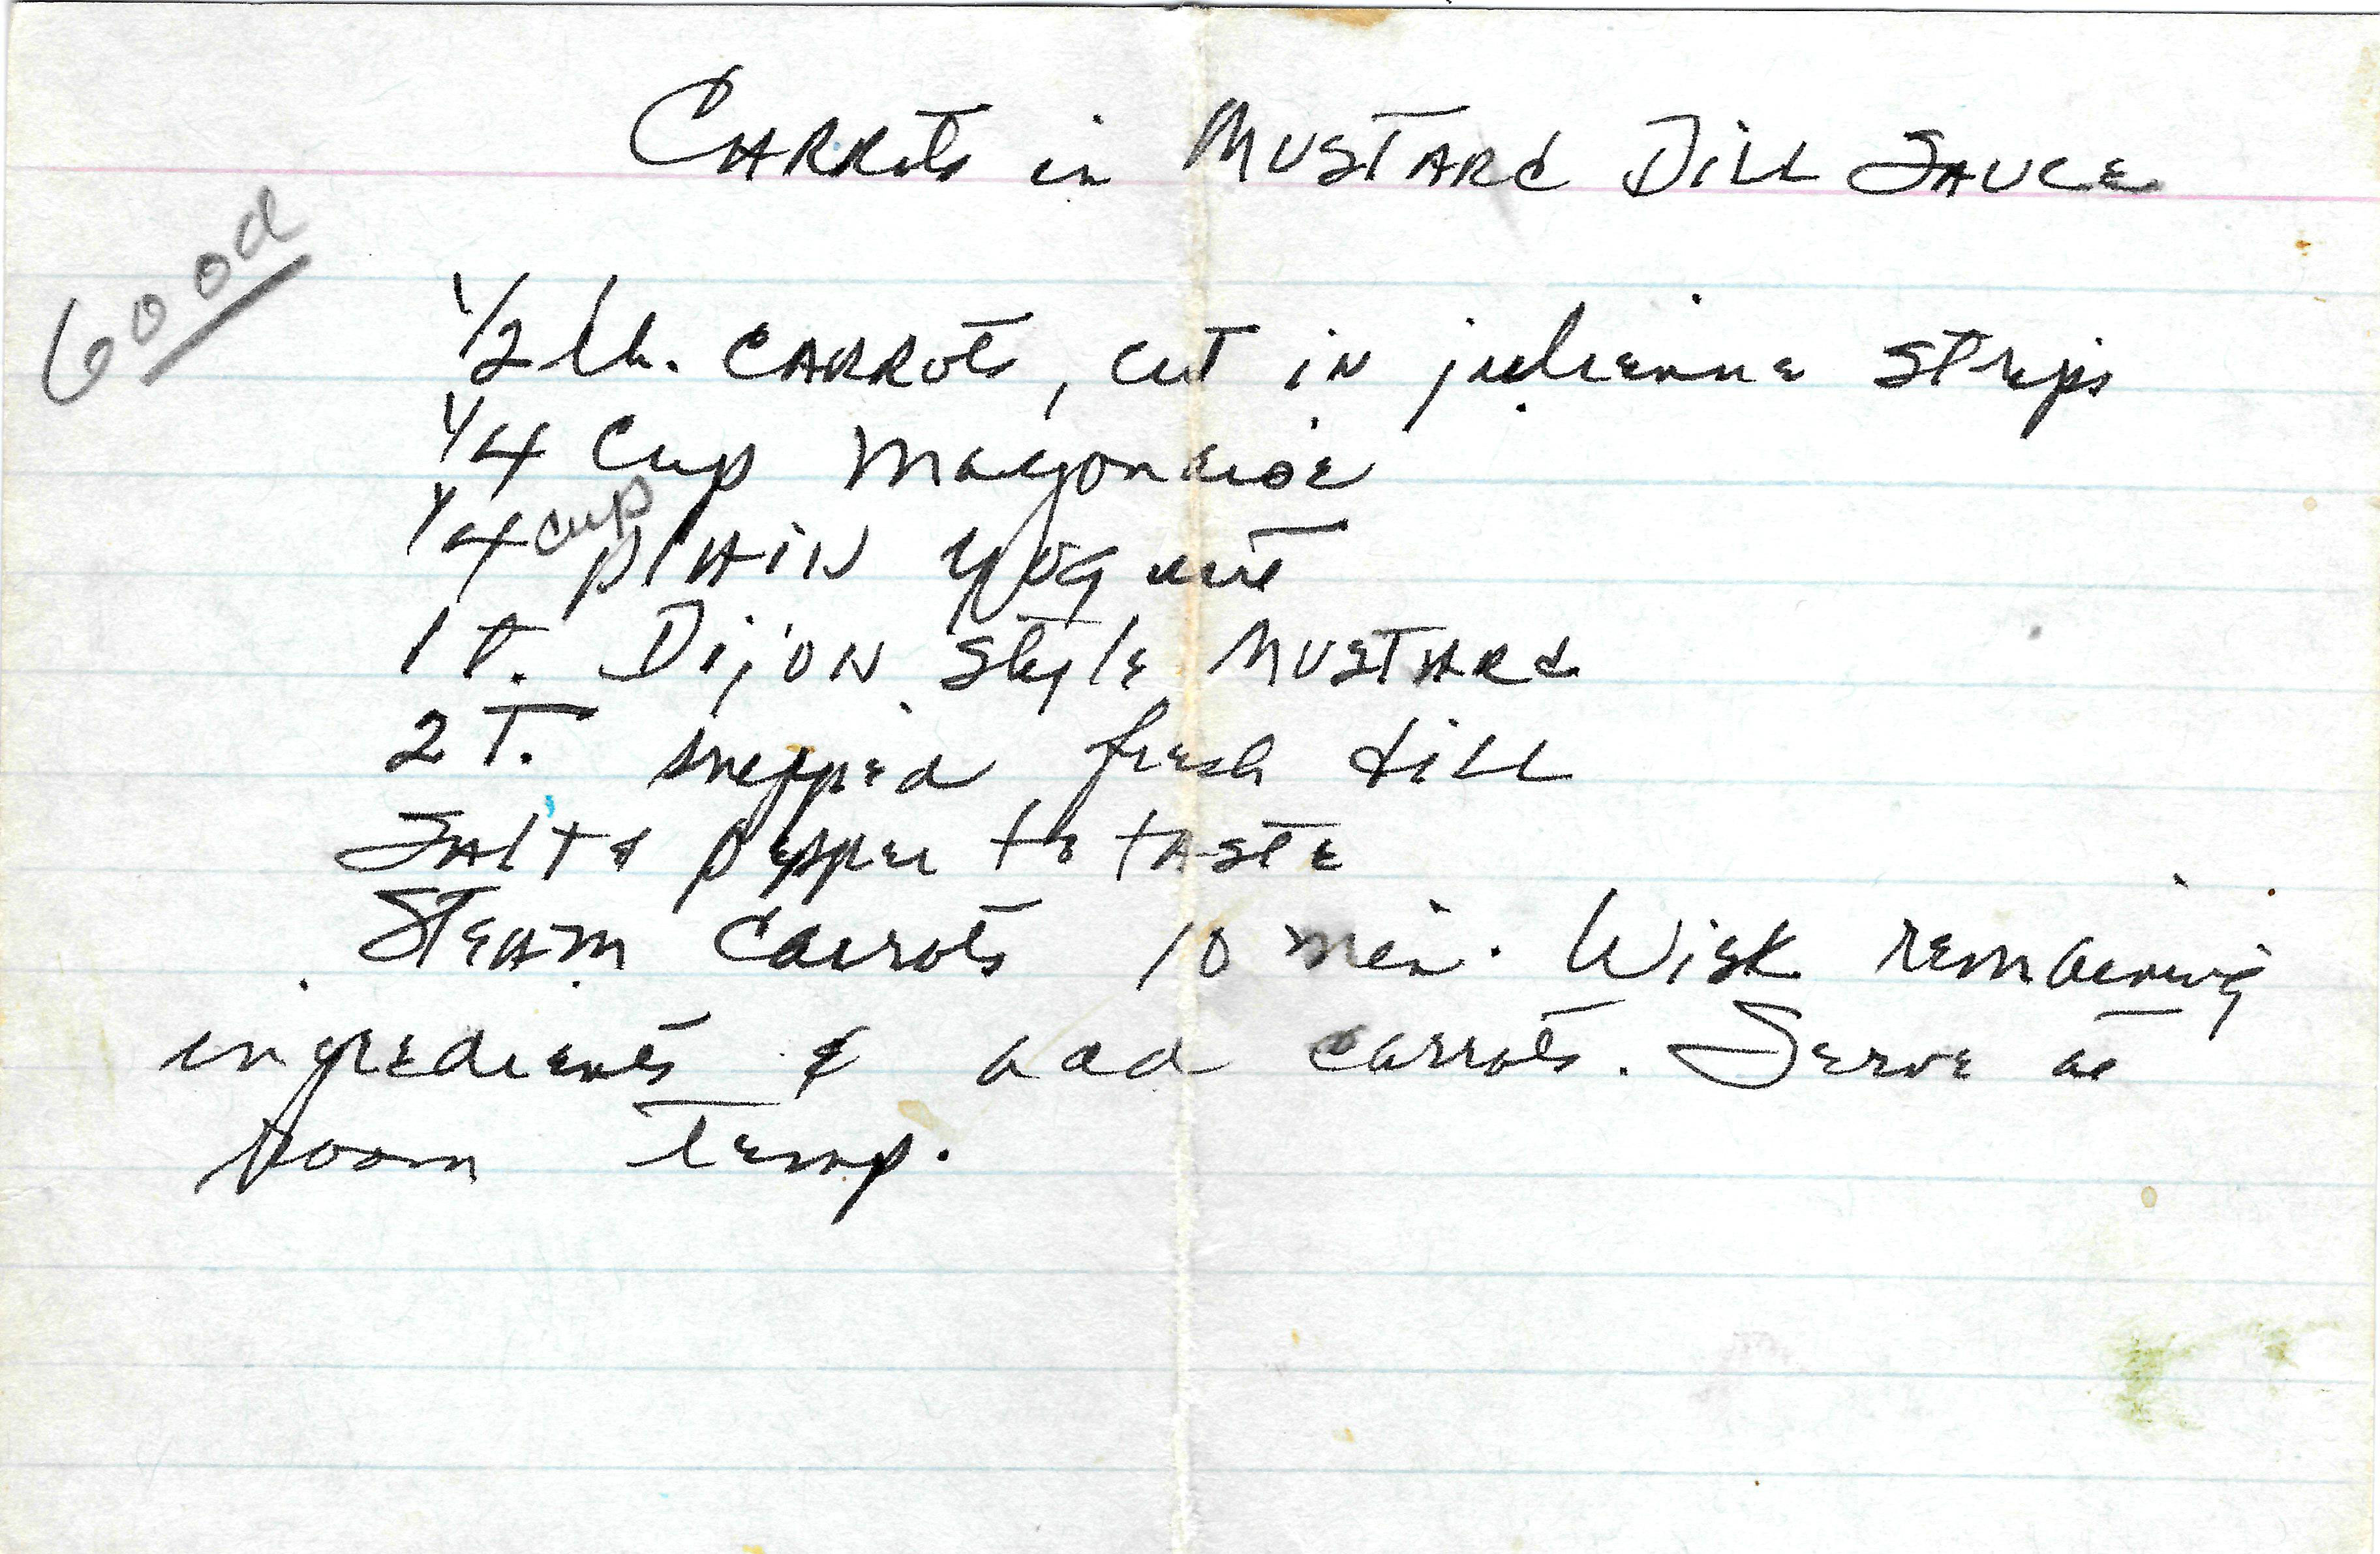 Carrots in Mustard Dill Sauce
Good
1/2 lb. Carrots, cut in julienne strips
1/4 Cup Mayonaise
1/4 cup plain yogurt
1 t. Dijon style Mustard
2 T. snipped fresh dill
Salt & pepper to taste
Steam Carrots 10 min. Wisk remaining
ingredients & add carrots. Serve at
room temp.